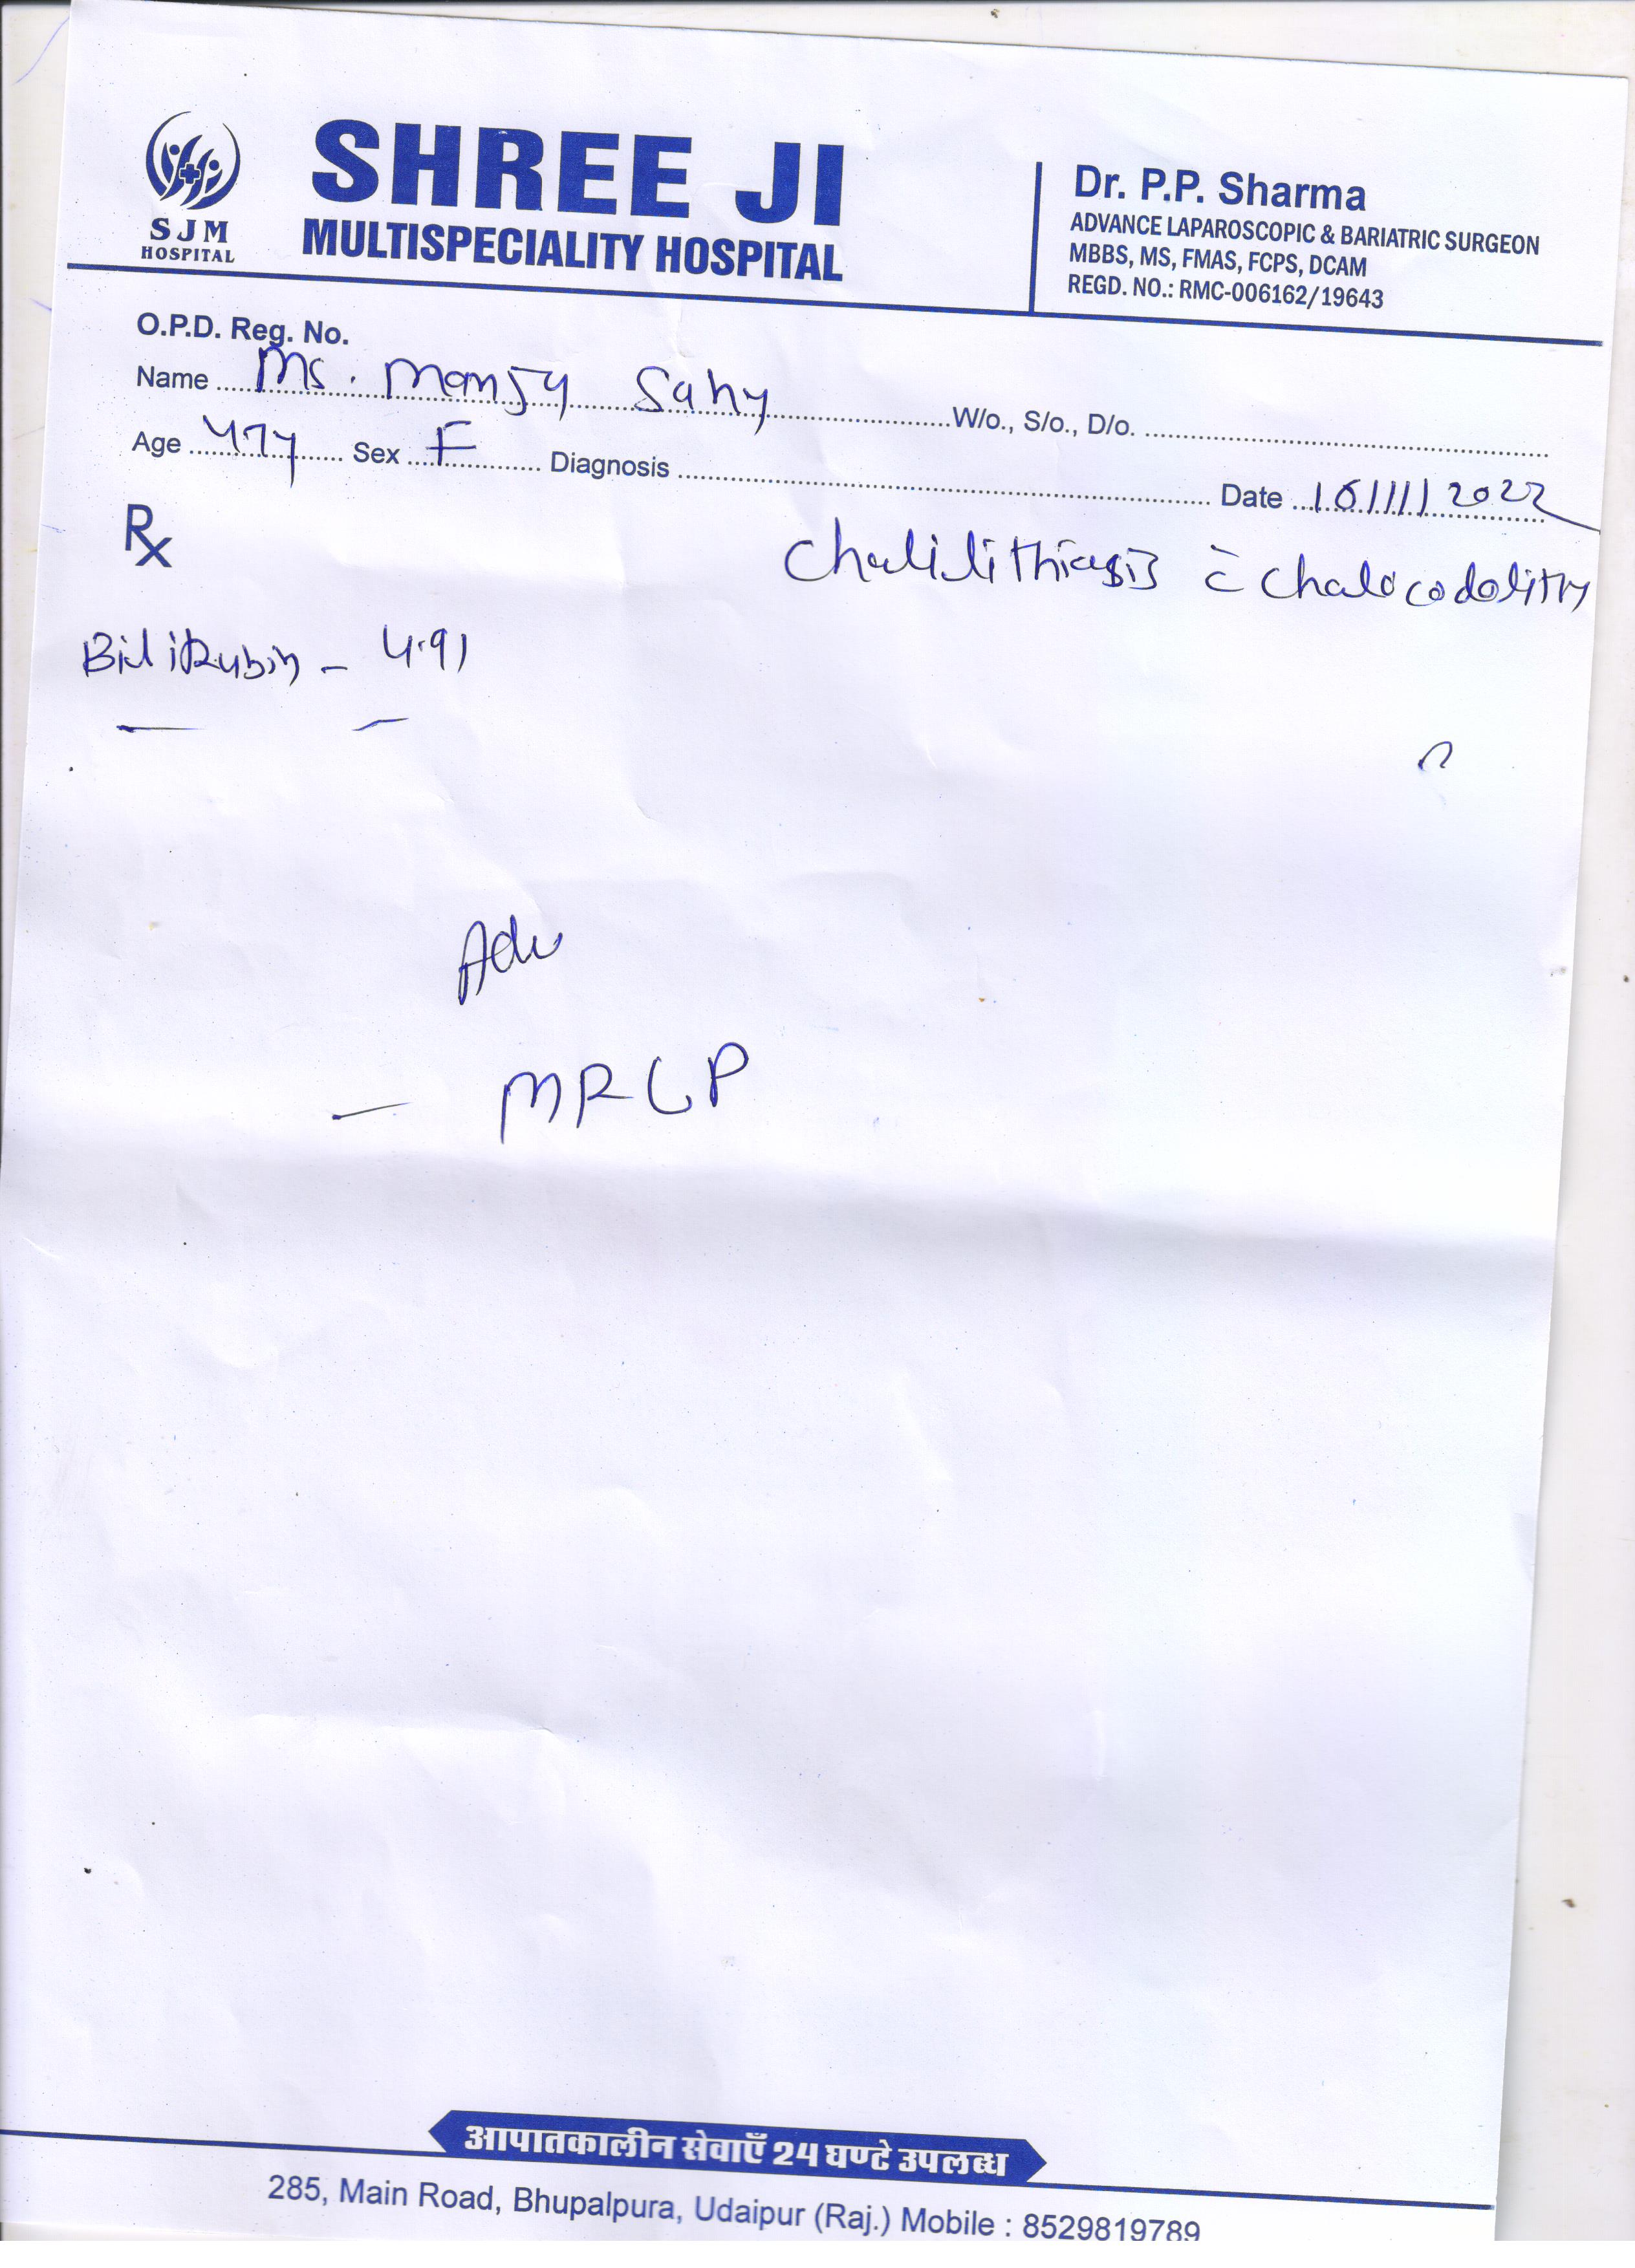 SHREE JI
MULTISPECIALITY HOSPITAL
SJM
HOSPITAL
Dr. P.P. Sharma
ADVANCE LAPAROSCOPIC & BARIATRIC SURGEON
MBBS, MS, FMAS, FCPS, DCAM
REGD. NO.: RMC-006162/19643
O.P.D. Reg. No.
Name Ms. Manju Sahu W/o., S/o., D/o.
Age 47y Sex F Diagnosis Date 16/11/2022
Rx
Cholilithiasis c̄
Bilirubin - 4.91
Adv
- MRCP
आपातकालीन सेवाएँ 24 घण्टे उपलब्ध
285, Main Road, Bhupalpura, Udaipur (Raj.) Mobile : 8529819789